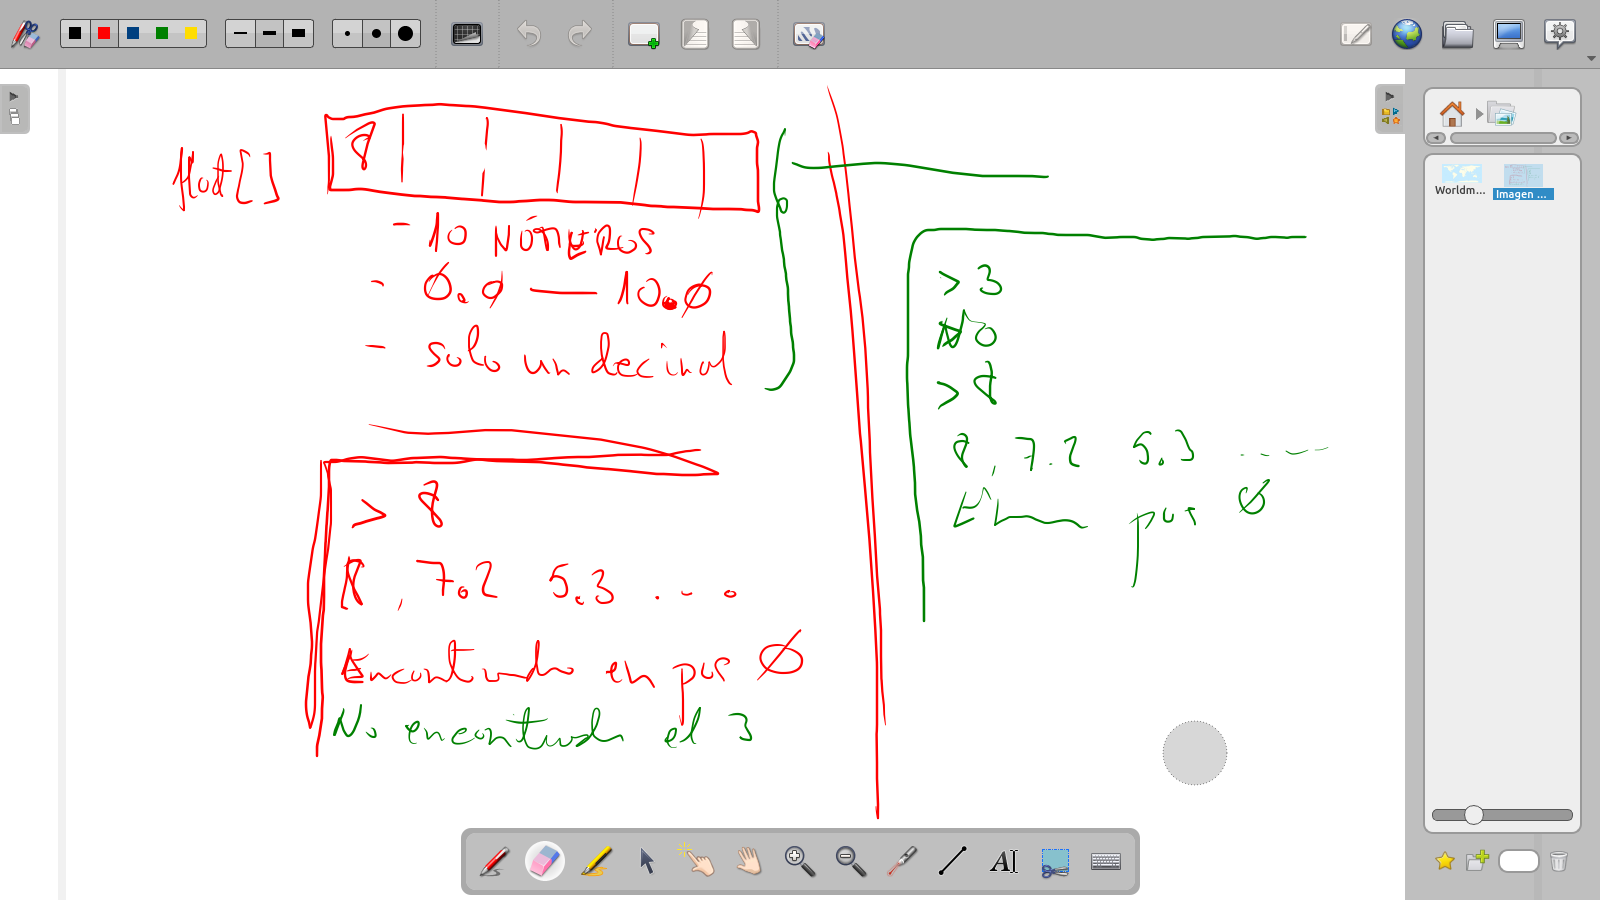 8
float[]
- 10 NÚMEROS
- 0.0 — 10.0
- solo un decimal
> 8
8, 7.2 5.3 ....
Encontrado en pos 0
No encontrado el 3
> 3
NO
> 8
8, 7.2 5.3 ......
pos 0
Worldm...
Imagen ...